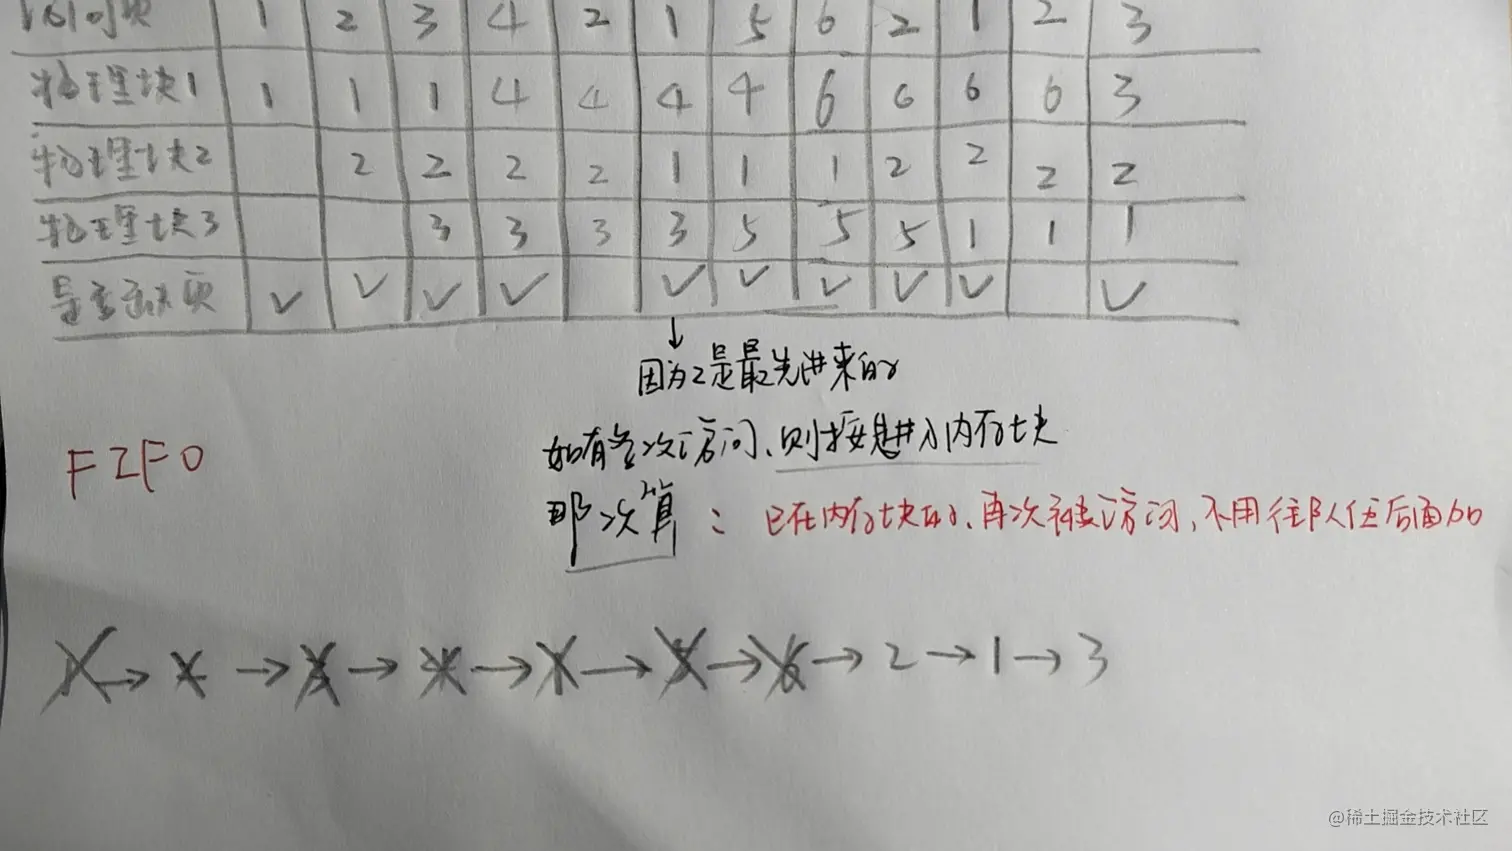 访问页 1 2 3 4 2 1 5 6 2 1 2 3
物理块1 1 1 1 4 4 4 4 6 6 6 6 3
物理块2 2 2 2 2 1 1 1 2 2 2 2
物理块3 3 3 3 3 5 5 5 1 1 1
是否缺页 √ √ √ √ √ √ √ √ √ √
↓
因为2是最先进来的
如有多次访问、则按进入内存块
FIFO
那次算：已在内存块的、再次被访问,不用往队伍后面加
→ → → → → → → 2 → 1 → 3
@稀土掘金技术社区